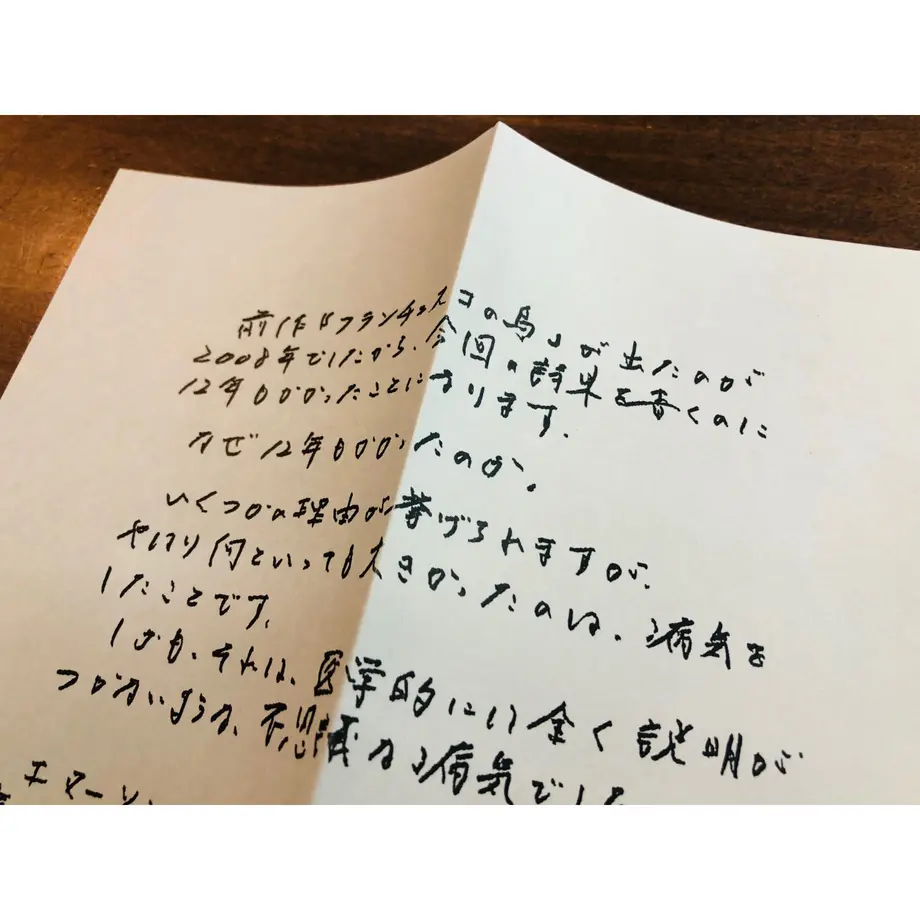 前作『フランチェスコの鳥』が出たのが
2008年でしたから、今回の詩集を書くのに
12年もかかったことになります。
なぜ12年もかかったのか。
いくつかの理由が挙げられますが、
やはり何といっても大きかったのは、病気を
したことです。
しかも、それは、医学的には全く説明が
つかないような、不思議な病気でした
エマーソン